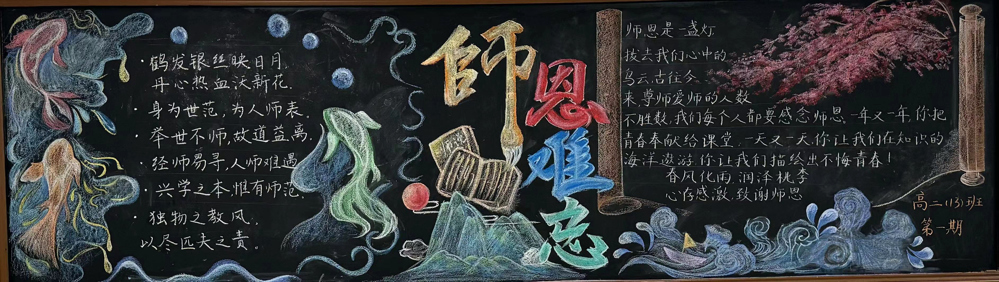 鹤发银丝映日月,
丹心热血沃新花.
身为世范,为人师表.
举世不师,故道益离.
经师易寻,人师难遇.
兴学之本,惟有师范.
独物之教风,
以尽匹夫之责。
師恩难忘
师恩是一盏灯
拔去我们心中的
乌云.古往今
来,尊师爱师的人数
不胜数.我们每个人都要感念师恩.一年又一年,你把
青春奉献给课堂.一天又一天,你让我们在知识的
海洋遨游.你让我们描绘出不悔青春!
春风化雨,润泽桃李
心存感激,致谢师恩
高二(13)班
第一期